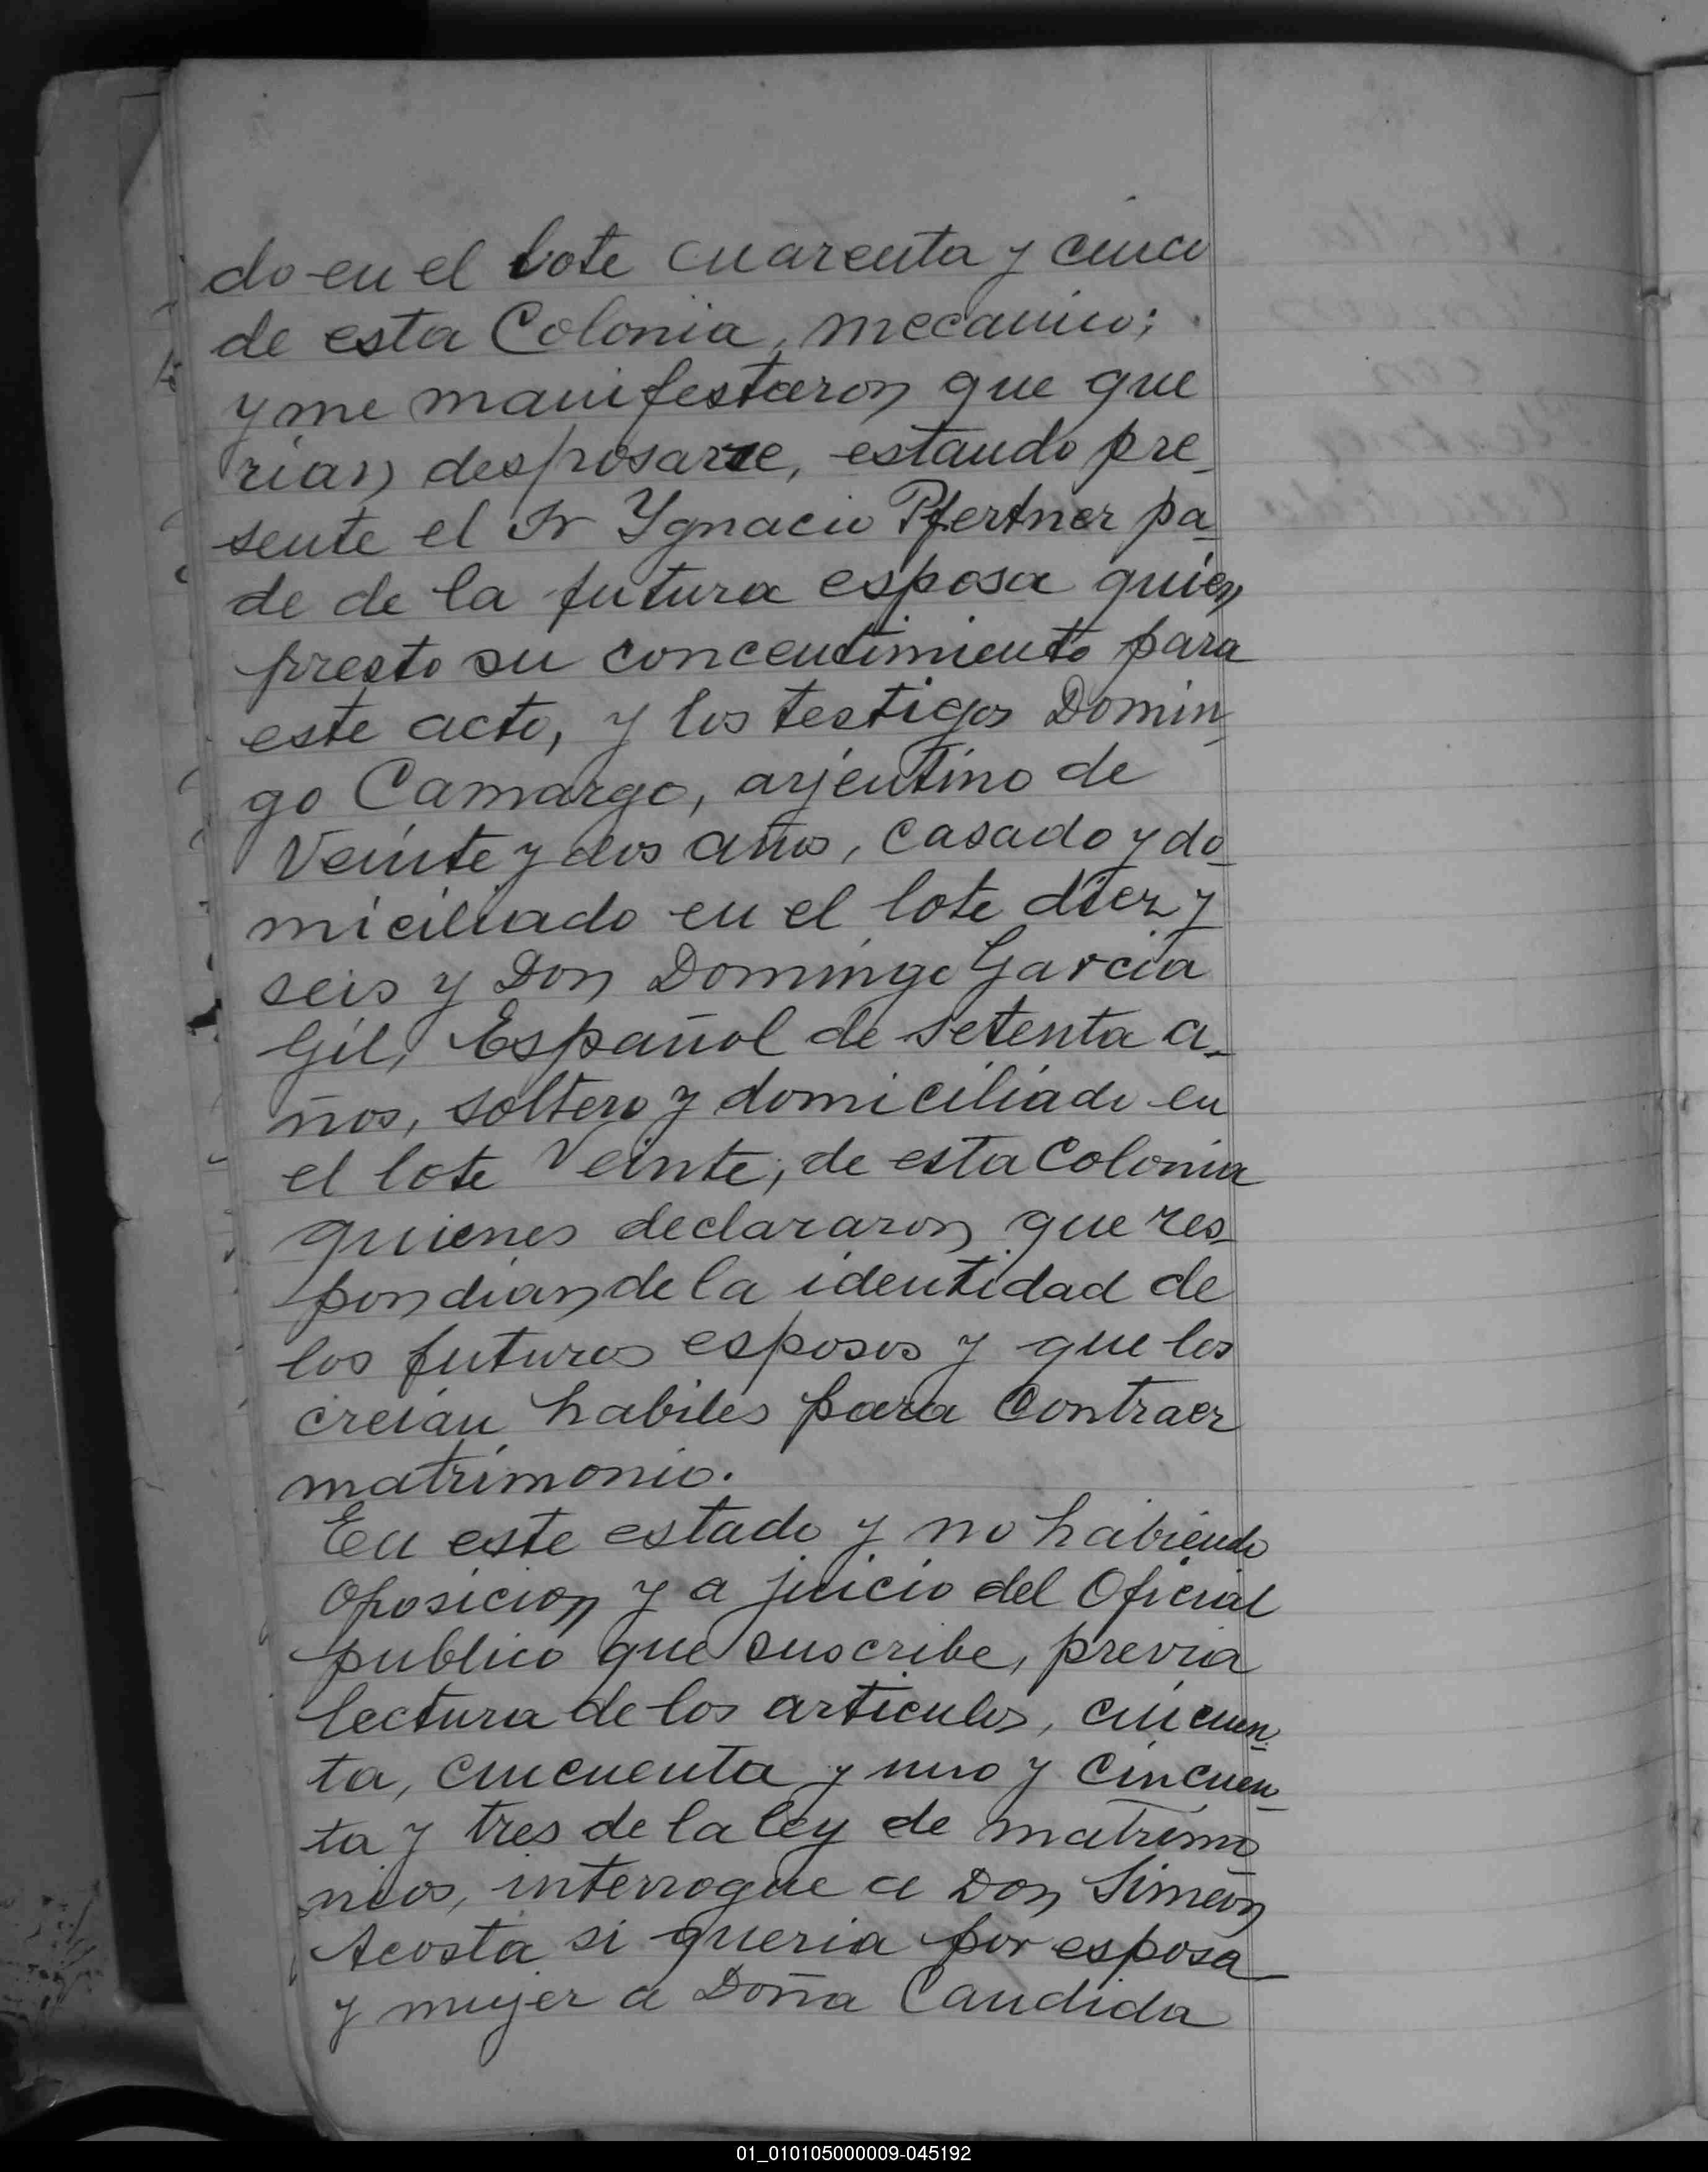 do en el lote cuarenta y cinco
de esta Colonia, mecanico;
y me manifestaron que que
rian desposarse, estando pre_
sente el Sr Ygnacio Pfertner pa_
de de la futura esposa quien
presto su concentimiento para
este acto, y los testigos Domin_
go Camargo, arjentino de
Veinte y dos años, casado y do_
miciliado en el lote diez y
seis y Don Domingo Garcia
Gil, Español de setenta a_
ños, soltero y domiciliado en
el lote Veinte, de esta Colonia
quienes declararon que res_
pondian de la identidad de
los futuros esposos y que los
creian habiles para Contraer
matrimonio.
En este estado y no habiendo
Oposicion y a juicio del Oficial
publico que suscribe, previa
lectura de los articulos, cincuen_
ta, cincuenta y uno y Cincuen_
ta y tres de la ley de matrimo_
nios, interrogue a Don Simeon
Acosta si queria por esposa
y mujer a Doña Candida
01_010105000009-045192